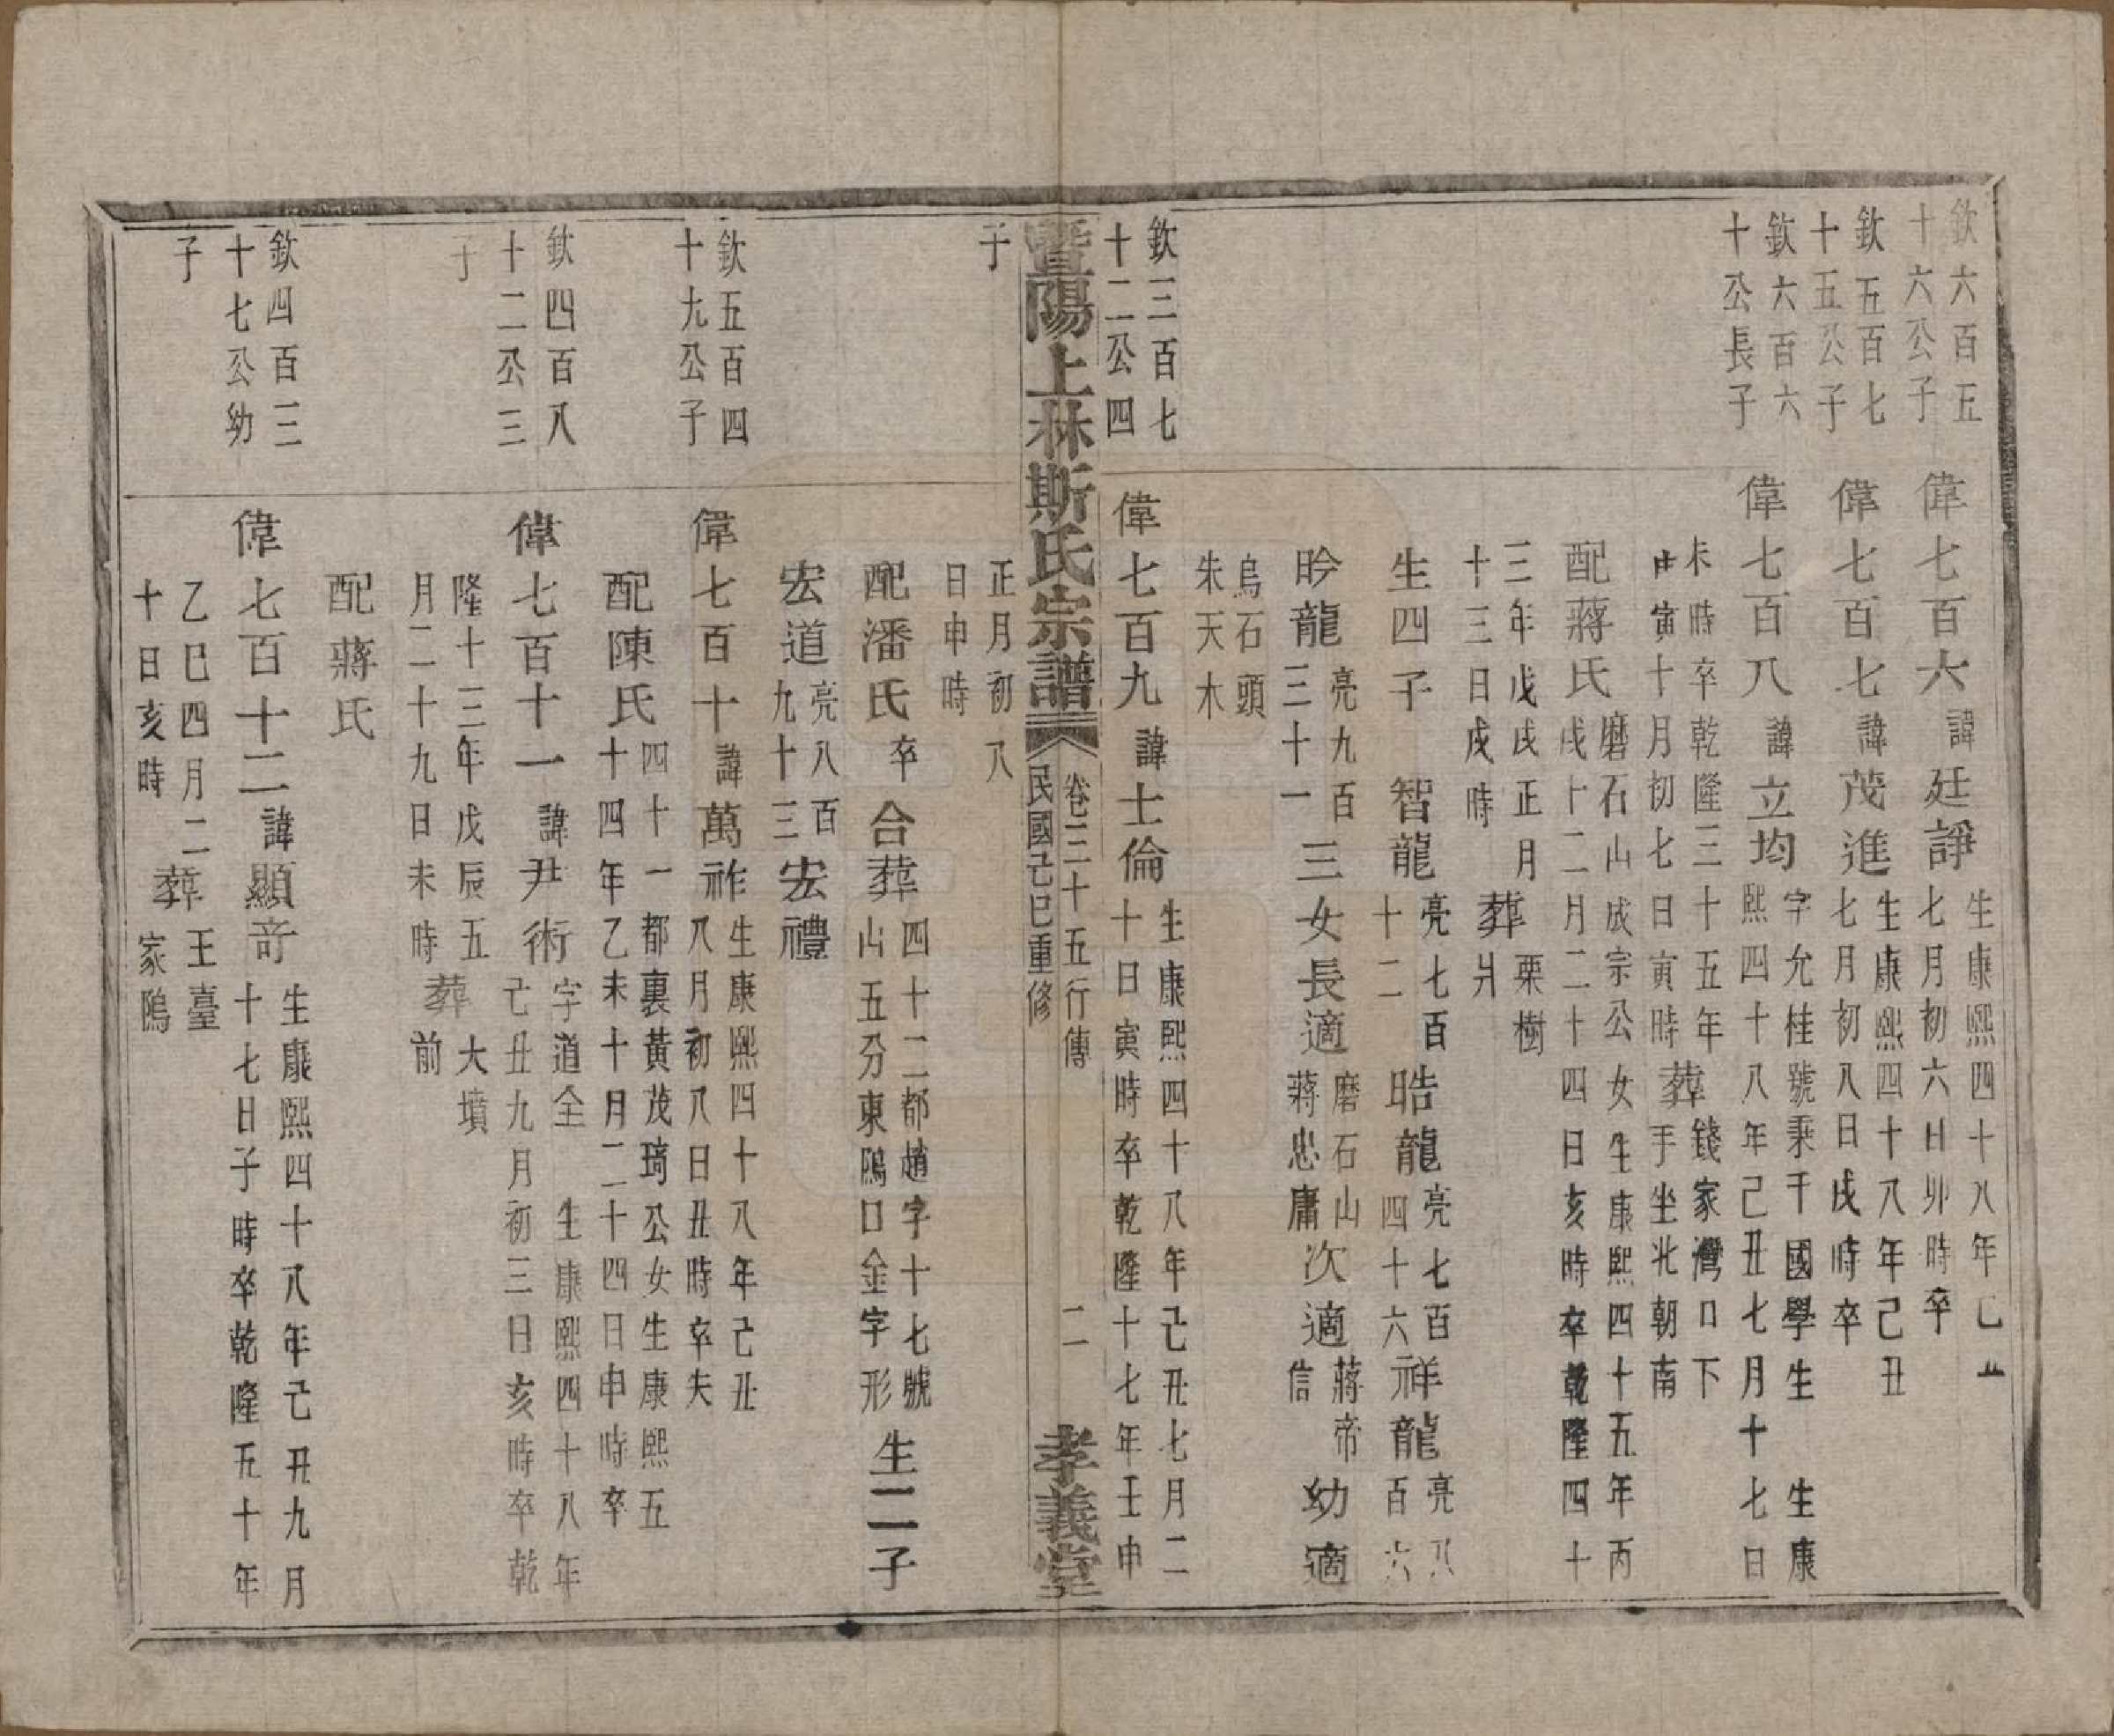 欽六百五
十六公子
偉七百六
諱
廷諍
生康熙四十八年己丑
七月初六日卯時卒
欽五百七
十五公子
偉七百七
諱
茂進
生康熙四十八年己丑
七月初八日戌時卒
欽六百六
十公長子
偉七百八
諱
立均
字允桂號秉千國學生 生康
熙四十八年己丑七月十七日
未時卒乾隆三十五年
寅十月初七日寅時
葬
錢家灣口下
手坐北朝南
配蔣氏
磨石山成宗公女生康熙四十五年丙
戌十二月二十四日亥時卒乾隆四十
三年戊戌正月
十三日戌時
葬
栗樹
爿
生四子
智龍
亮七百
十二
晧龍
亮七百
四十六
祥龍
亮八
百六
昑龍
亮九百
三十一
三女長適
磨石山
蔣忠庸
次適
蔣帝
信
幼適
烏石頭
朱天木
欽三百七
十二公四
子
偉七百九
諱
士倫
生康熙四十八年己丑七月二
十日寅時卒乾隆十七年壬申
暨陽上林斯氏宗譜
卷三十五行傳
民國己巳重修
二
孝義堂
正月初八
日申時
配潘氏
卒
合葬
四十二都趙字十七號
山五分東隖口金字形
生二子
宏道
亮八百
九十三
宏禮
欽五百四
十九公子
偉七百十
諱
萬祚
生康熙四十八年己丑
八月初八日丑時卒失
配陳氏
四十一都裏黃茂琦公女生康熙五
十四年乙未十月二十四日申時卒
欽四百八
十二公三
子
偉七百十一
諱
尹術
字道全 生康熙四十八年
己丑九月初三日亥時卒乾
隆十三年戊辰五
月二十九日未時
葬
大墳
前
配蔣氏
欽四百三
十七公幼
子
偉七百十二
諱
顯奇
生康熙四十八年己丑九月
十七日子時卒乾隆五十年
乙巳四月二
十日亥時
葬
王臺
家隖